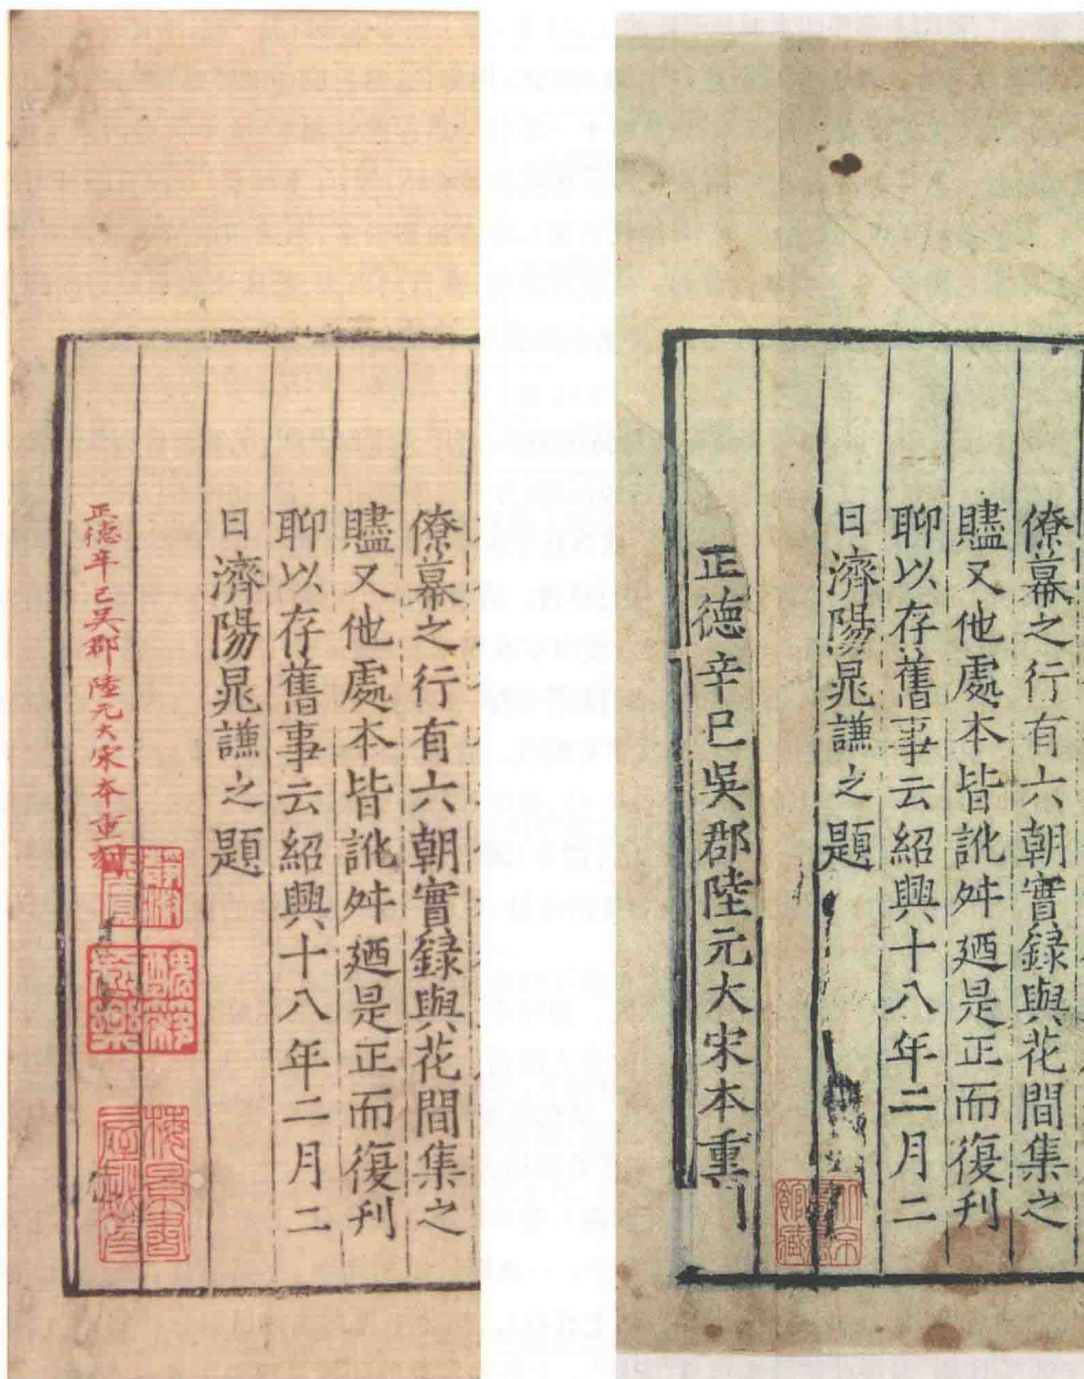 僚幕之行有六朝實録與花間集之
贐又他處本皆訛舛廼是正而復刊
聊以存舊事云紹興十八年二月二
日濟陽晁謙之題
正德辛巳吴郡陸元大宋本重刻
僚幕之行有六朝實録與花間集之
贐又他處本皆訛舛廼是正而復刊
聊以存舊事云紹興十八年二月二
日濟陽晁謙之題
正德辛巳吳郡陸元大宋本重